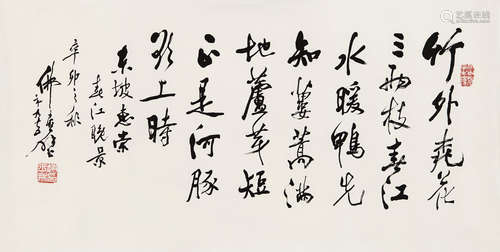 竹外桃花
三两枝春江
水暖鴨先
知蔞蒿满
地蘆芽短
正是河豚
欲上時
东坡惠崇
春江晚景
辛卯之秋
佛